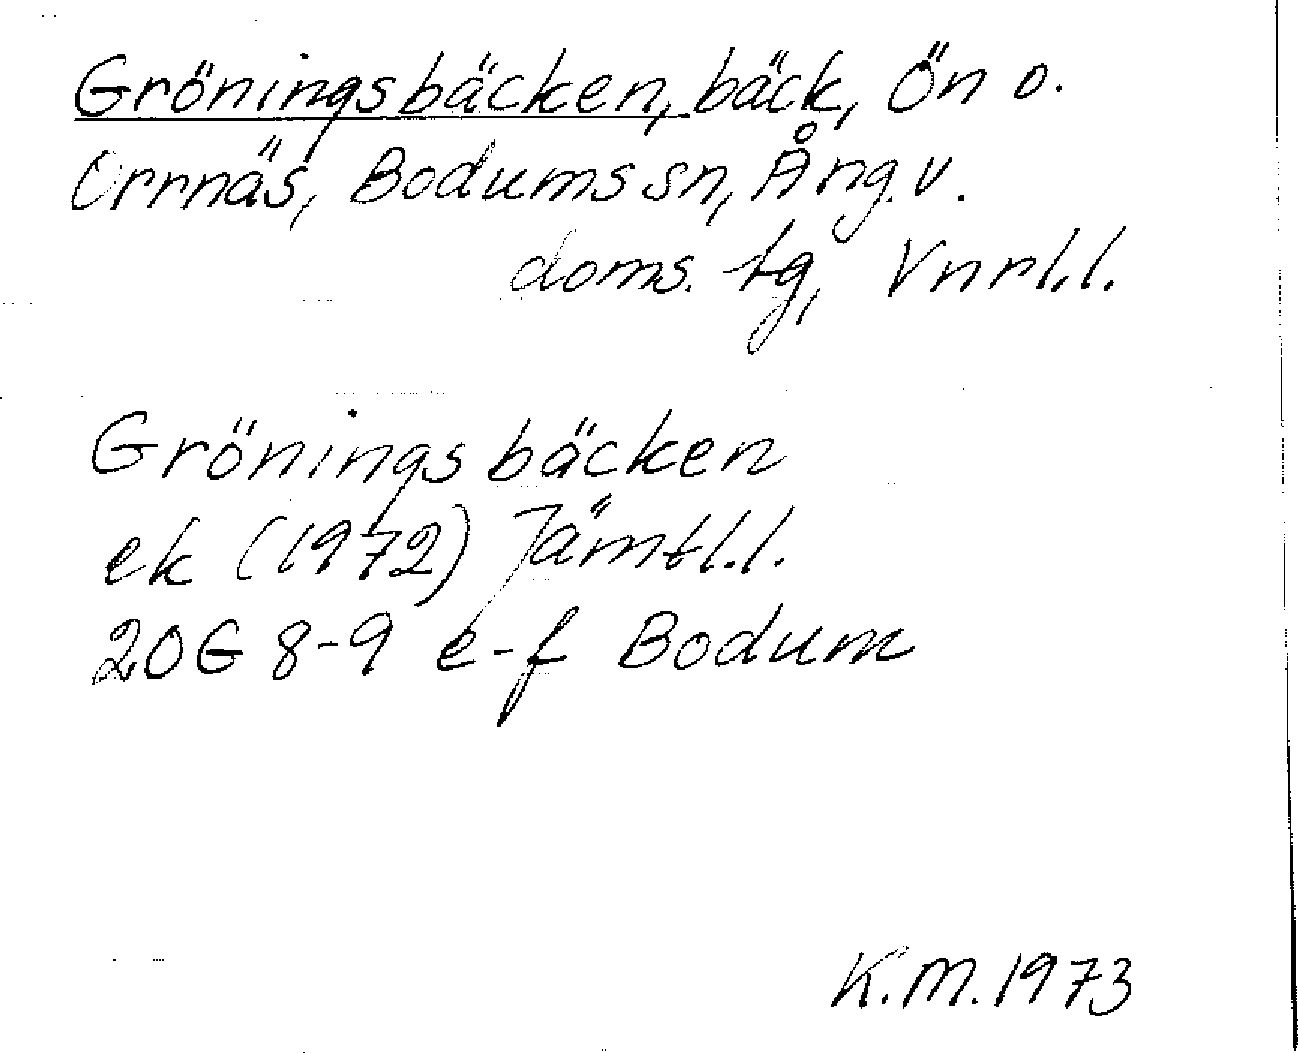 Gröningsbäcken, bäck, Ön o.
Orrnäs, Bodums sn, Ång.v.
doms. tg, Vnrl.l.
Gröningsbäcken
ek (1972) Jämtl.l.
20G 8-9 e-f Bodum
K.M. 1973